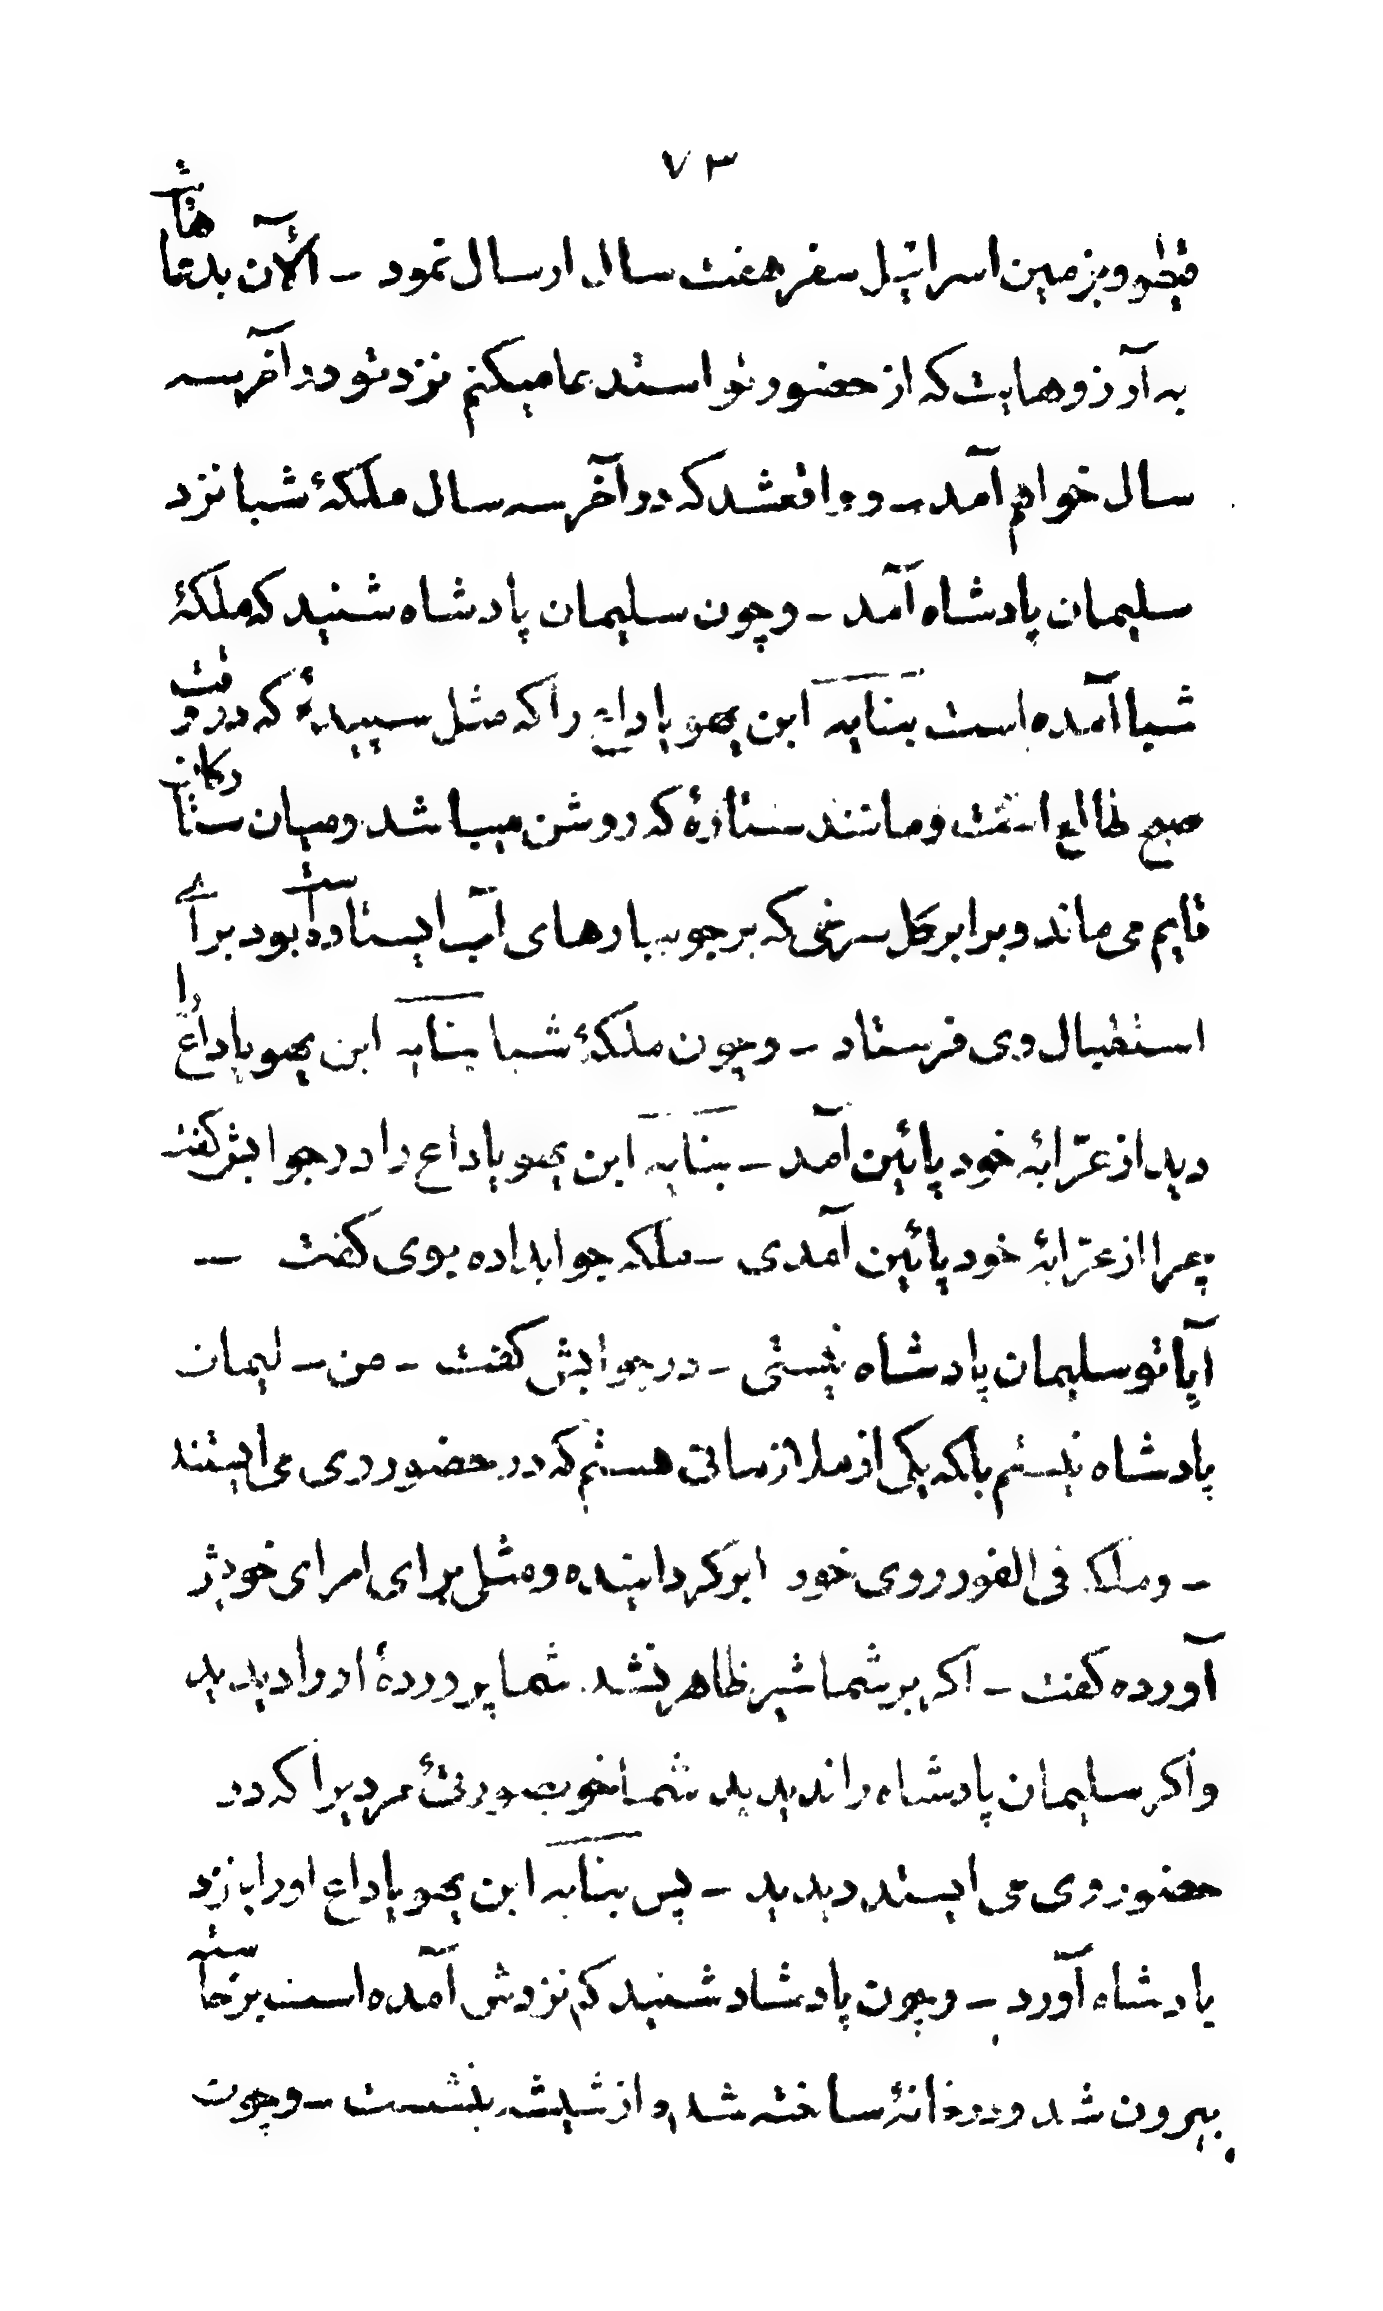 ٧٣
قیطور و بزمین اسرائیل سفر هفت سال ارسال نمود – الآن بدقتهایت
به آرزوهایت که از حضور تو استدعا میکنم نزد تو در آخر سه
سال خواهم آمد – و واقعشد که در آخر سه سال ملکهٔ شبا نزد
سلیمان پادشاه آمد – و چون سلیمان پادشاه شنید که ملکهٔ
شبا آمده است بنایه ابن یهویاداع را که مثل سپیدهٔ که در وقت
صبح طالع است و مانند ستارهٔ که روشن میباشد و میان ستارکان
قایم می ماند و برابر کل سرخی که بر جویبارهای آب ایستاده است بود برای
استقبال وی فرستاد – و چون ملکهٔ شبا بنایه ابن یهویاداع را
دید از عرّابهٔ خود پائین آمد – بنایه ابن یهویاداع را در جوابش کفت
چرا از عرّابهٔ خود پائین آمدی – ملکه جوابداده بوی کفت –
آیا تو سلیمان پادشاه نیستی – در جوابش کفت – من سلیمان
پادشاه نیستم بلکه یکی از ملازمانی هستم که در حضور وی می ایستند
– و ملکه فی الفور روی خود ابر کردانیده و مثل برای امرای خود بز
آورده کفت – اکر بر شما شیر ظاهر نشد شما پروردهٔ او را دیدید
و اکر سلیمان پادشاه را ندیدید شما خوبصورتئ مردیرا که در
حضور وی می ایستد دیدید – پس بنایه ابن یهویاداع او را بنزد
پادشاه آورد – و چون پادشاه شنید که نزدش آمده است برخاسته
بیرون شد و در خانهٔ ساخته شده از شیشه بنشست – و چون